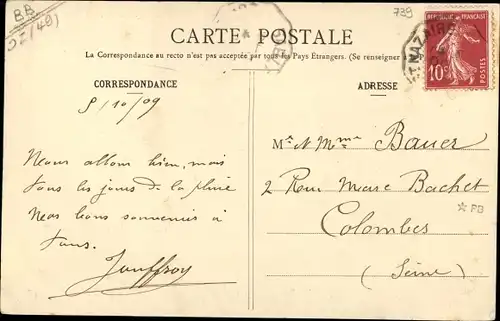 BB
739
CARTE POSTALE
RÉPUBLIQUE FRANÇAISE
10c
POSTES
ST NAZAIRE
La Correspondance au recto n'est pas acceptée par tous les Pays Étrangers. (Se renseigner à
CORRESPONDANCE
ADRESSE
8/10/09
Mr & Mme Bauer
Nous allons bien, mais
tous les jours de la pluie
2 Rue Marc Bachet
Nos bons souvenirs à
Colombes
tous.
* FB
Jouffroy
(Seine)